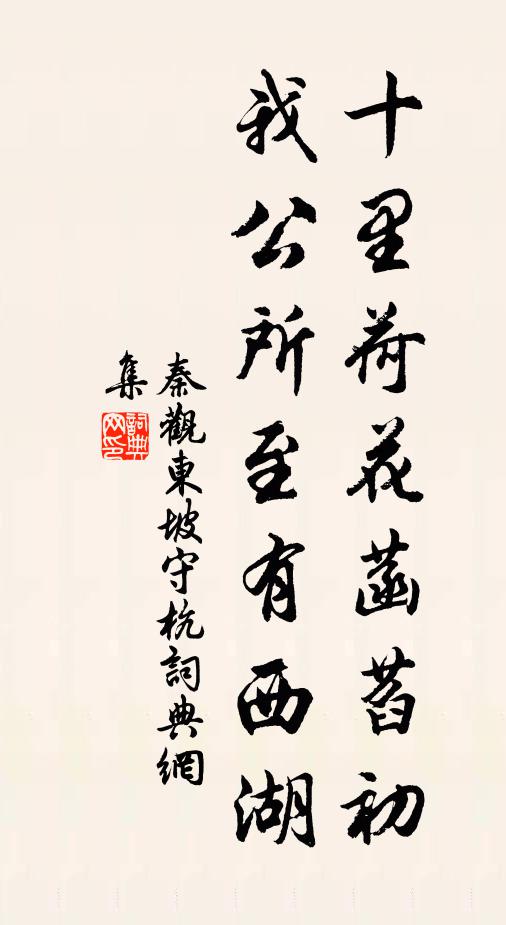 十里荷花菡萏初
我公所至有西湖
秦觀東坡守杭詞典網
集
詞典网印